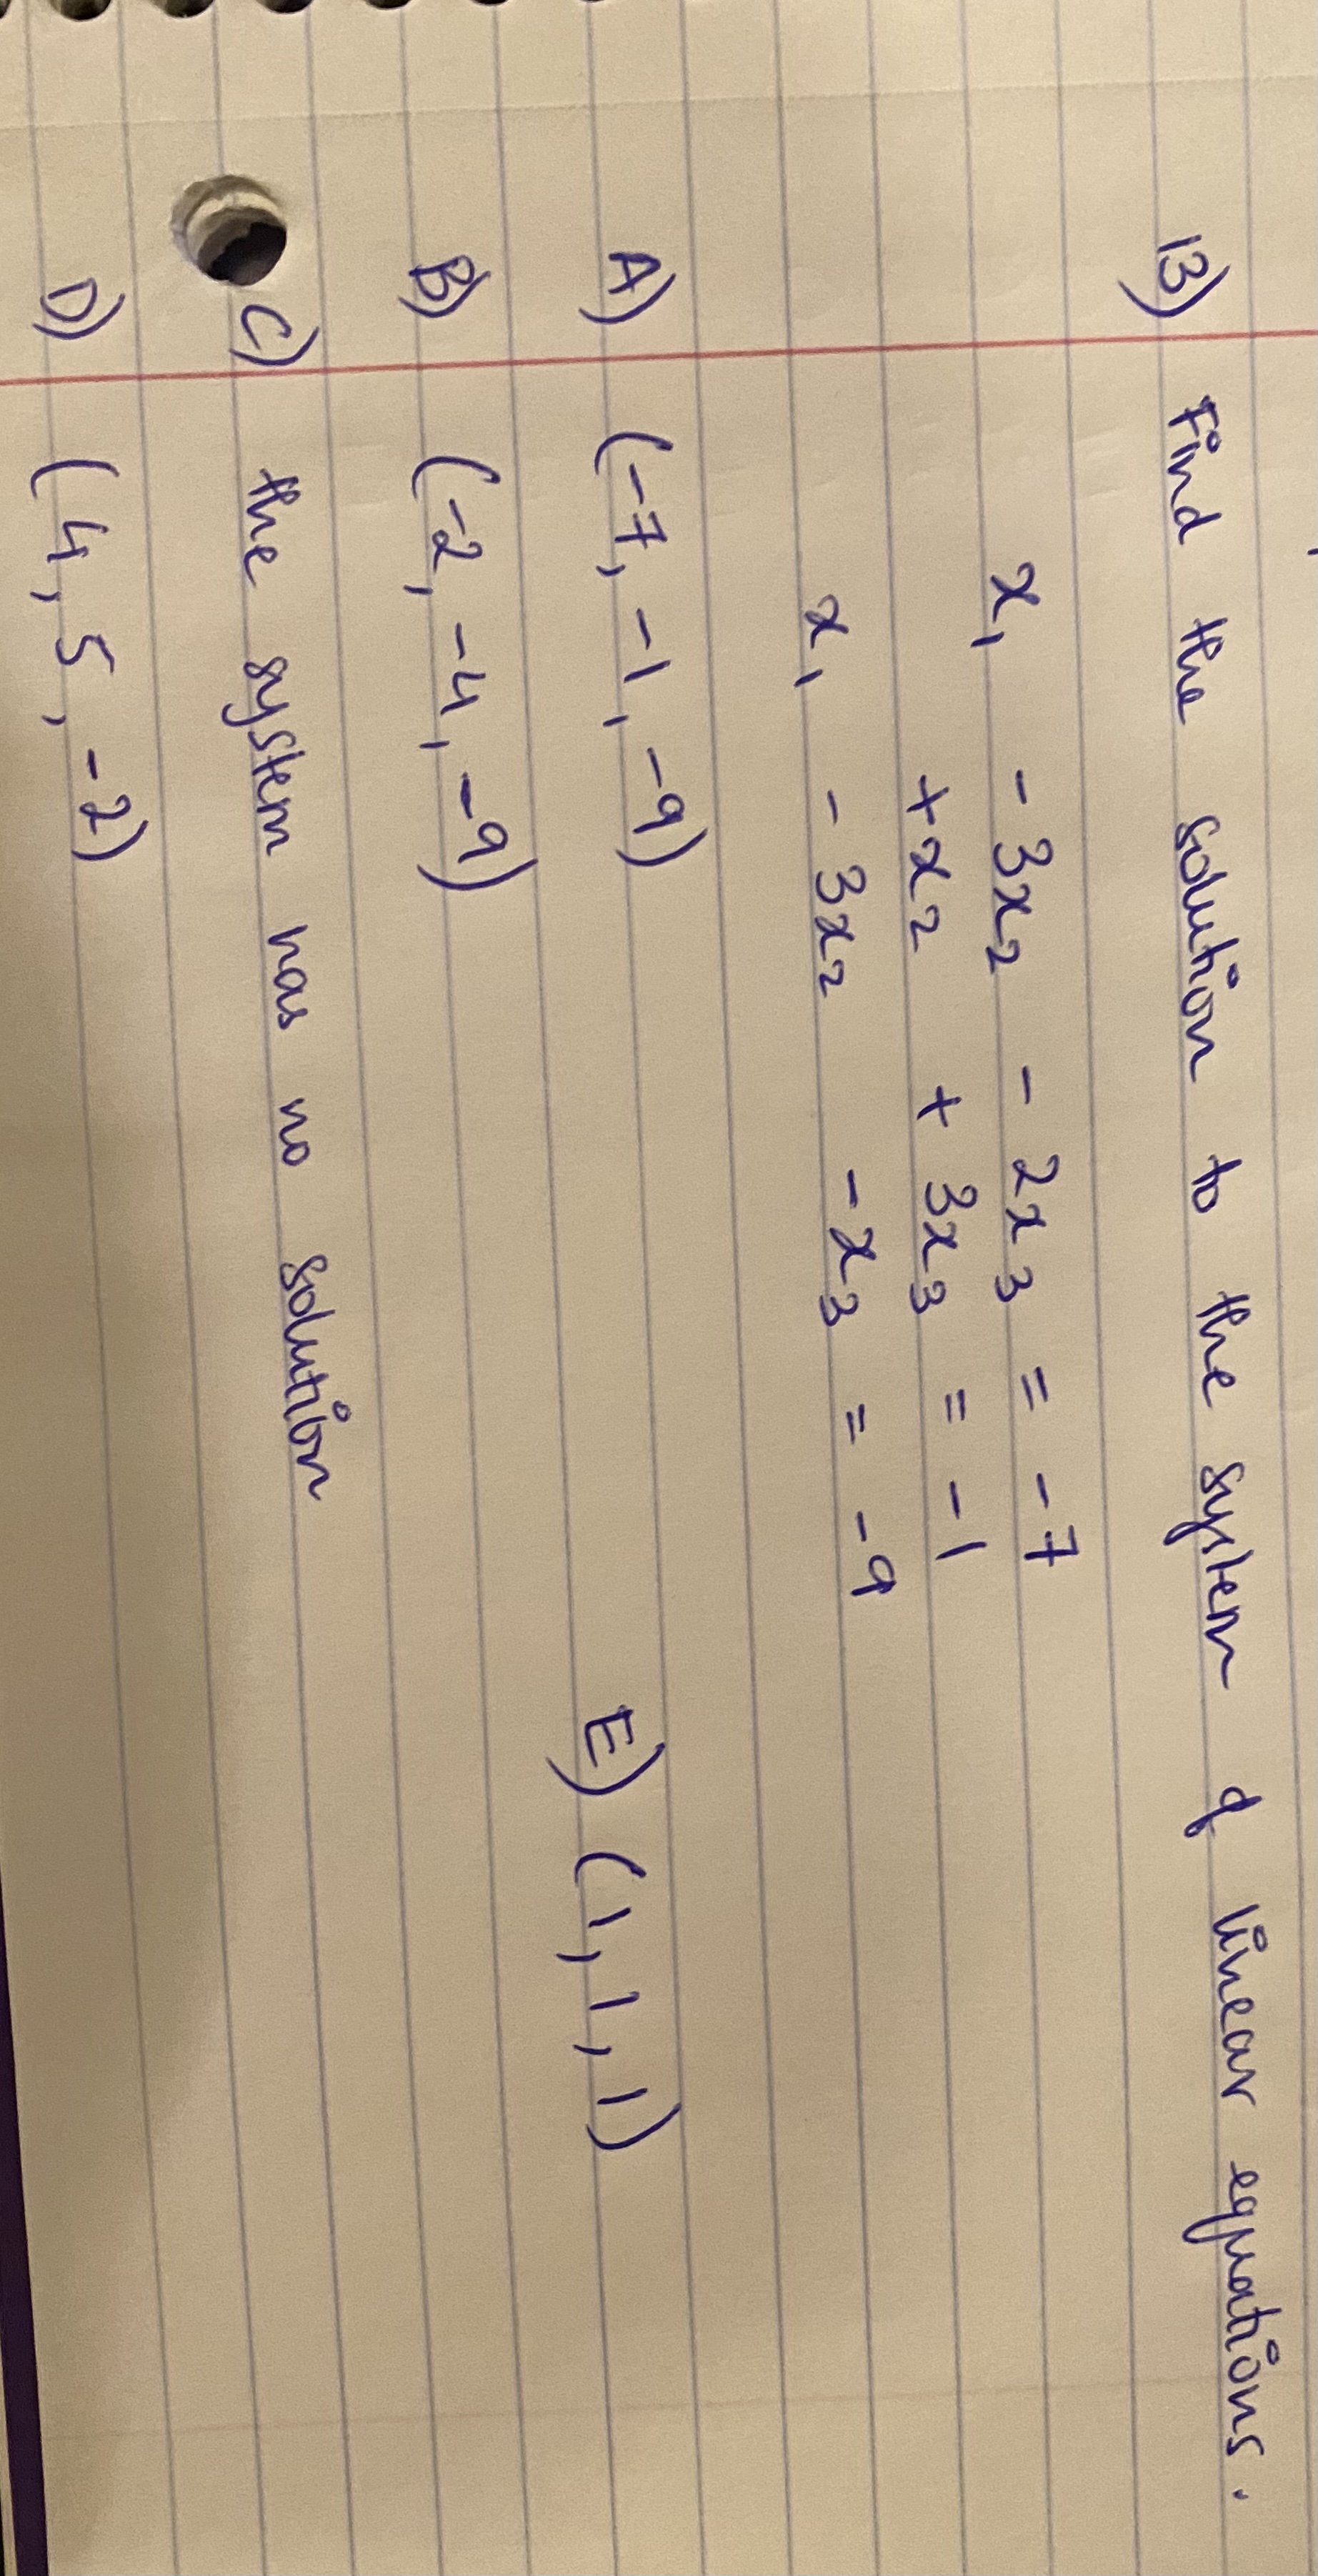 13) Find the solution to the system of linear equations.
x₁ - 3x₂ - 2x₃ = -7
+x₂ + 3x₃ = -1
x₁ - 3x₂ -x₃ = -9
A) (-7, -1, -9) E) (1, 1, 1)
B) (-2, -4, -9)
C) the system has no solution
D) (4, 5, -2)